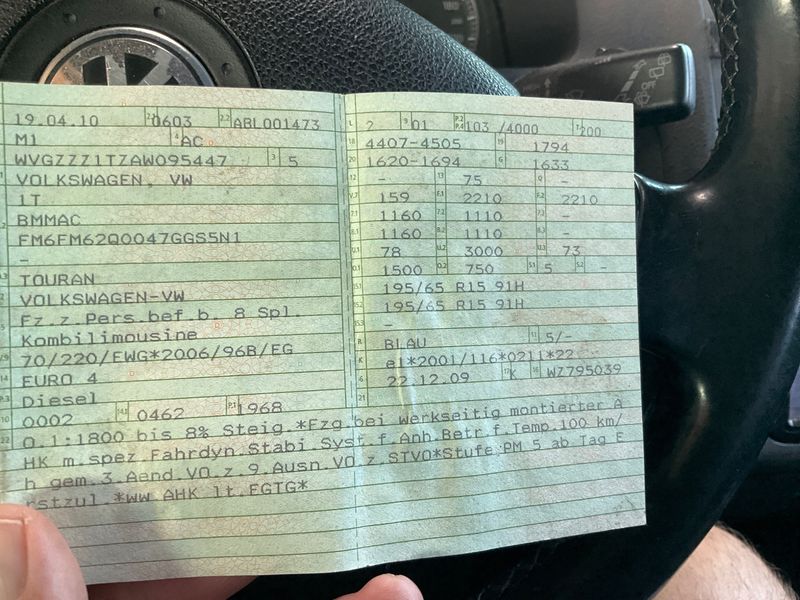 19.04.10 0603 ABL001473
M1 AC
WVGZZZ1TZAW095447 5
VOLKSWAGEN, VW
1T
BMMAC
FM6FM62Q0047GGS5N1
-
TOURAN
VOLKSWAGEN-VW
Fz.z.Pers.bef.b. 8 Spl.
Kombilimousine
70/220/EWG*2006/96B/EG
EURO 4
Diesel
0002 0462 1968
2 01 103 /4000 200
4407-4505 1794
1620-1694 1633
- 75 -
159 2210 2210
1160 1110 -
1160 1110 -
78 3000 73
1500 750 5 -
195/65 R15 91H
195/65 R15 91H
-
BLAU 5/-
e1*2001/116*0211*22
22.12.09 K WZ795039
O.1:1800 bis 8% Steig.*Fzg.bei werkseitig montierter A
HK m.spez.Fahrdyn.Stabi Syst.f.Anh.Betr.f.Temp.100 km/
h gem.3.Aend.VO.z.9.Ausn.VO.z.STVO*Stufe PM 5 ab Tag E
rstzul.*ww AHK lt.EGTG*